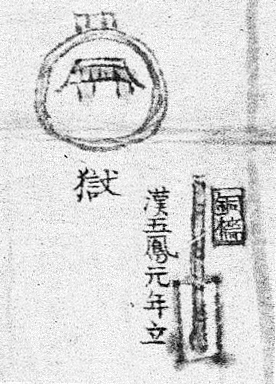 獄
銅檣
漢五鳳元年立